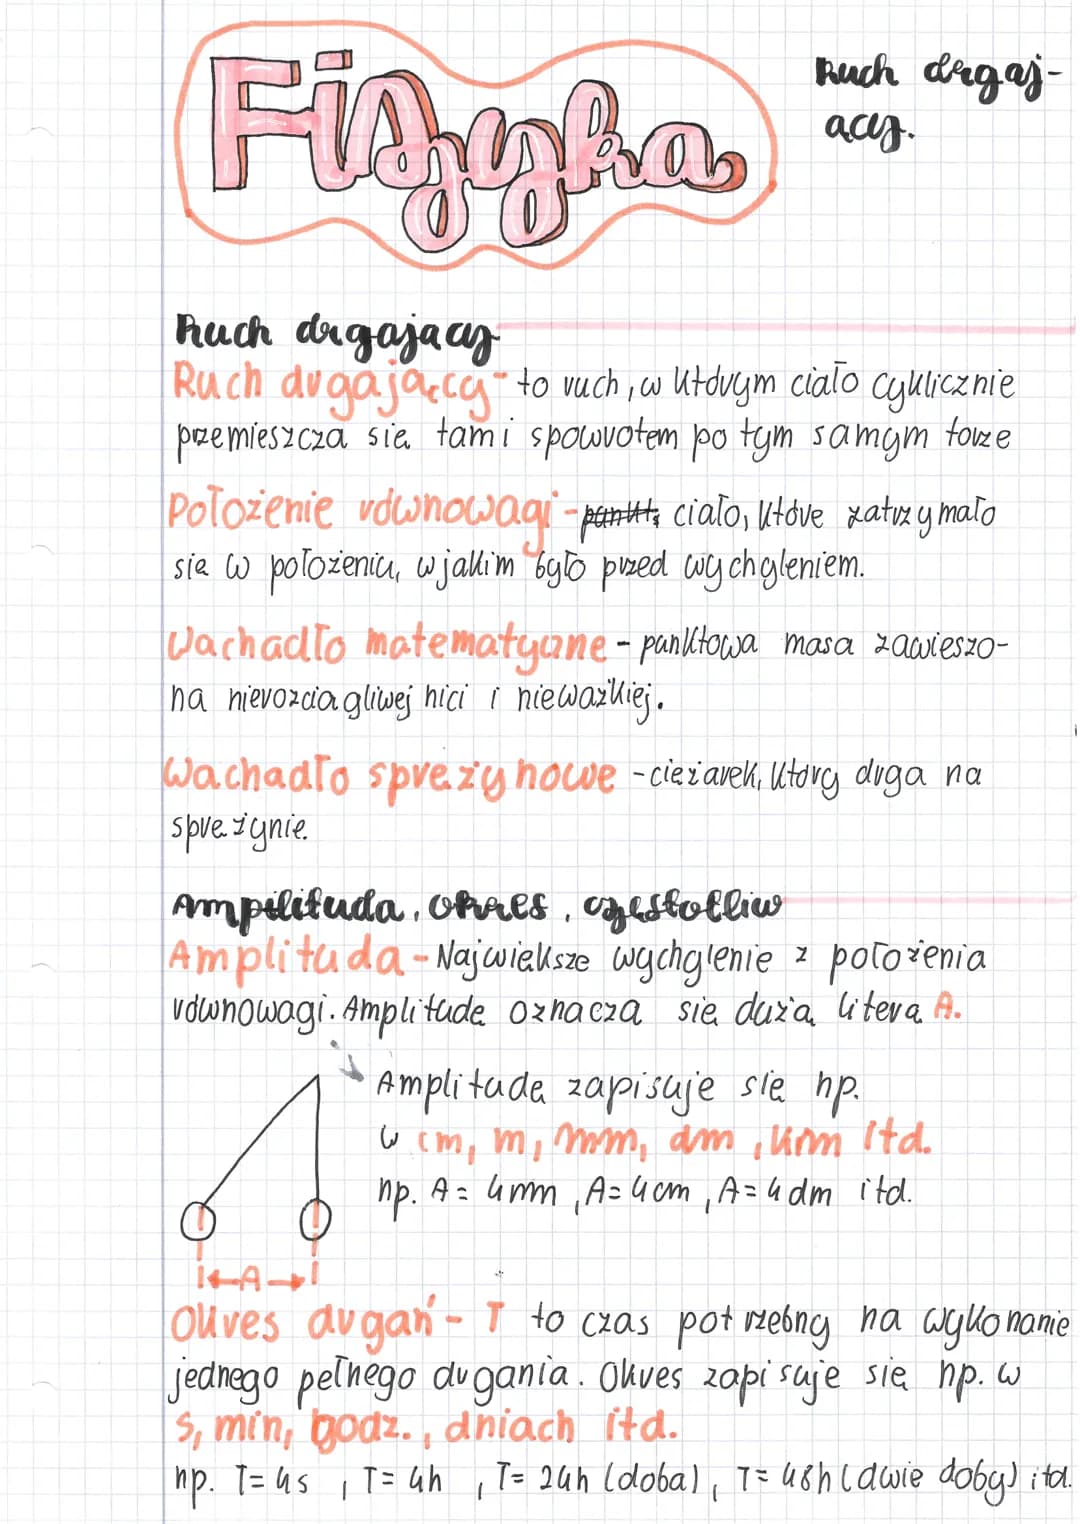 Fizyka
Ruch drgaj-
ący.
Ruch drgający
Ruch drgający - to ruch, w którym ciało cyklicznie
przemieszcza się tam i spowrotem po tym samym torze
Położenie równowagi - punkt, ciało, które zatrzymało
się w położeniu, w jakim było przed wychyleniem.
Wachadło matematyczne - punktowa masa zawieszo-
na nierozciągliwej nici i nieważkiej.
Wachadło sprężynowe - ciężarek, który drga na
sprężynie.
Amplituda, okres, częstotliw
Amplituda - Największe wychylenie z położenia
równowagi. Amplitudę oznacza się dużą literą A.
Amplitudę zapisuje się np.
w cm, m, mm, dm, km itd.
np. A = 4mm, A = 4cm, A = 4dm itd.
A
Okres drgań - T to czas potrzebny na wykonanie
jednego pełnego drgania. Okres zapisuje się np. w
s, min, godz., dniach itd.
np. T = 4s, T = 4h, T = 24h (doba), T = 48h (dwie doby) itd.